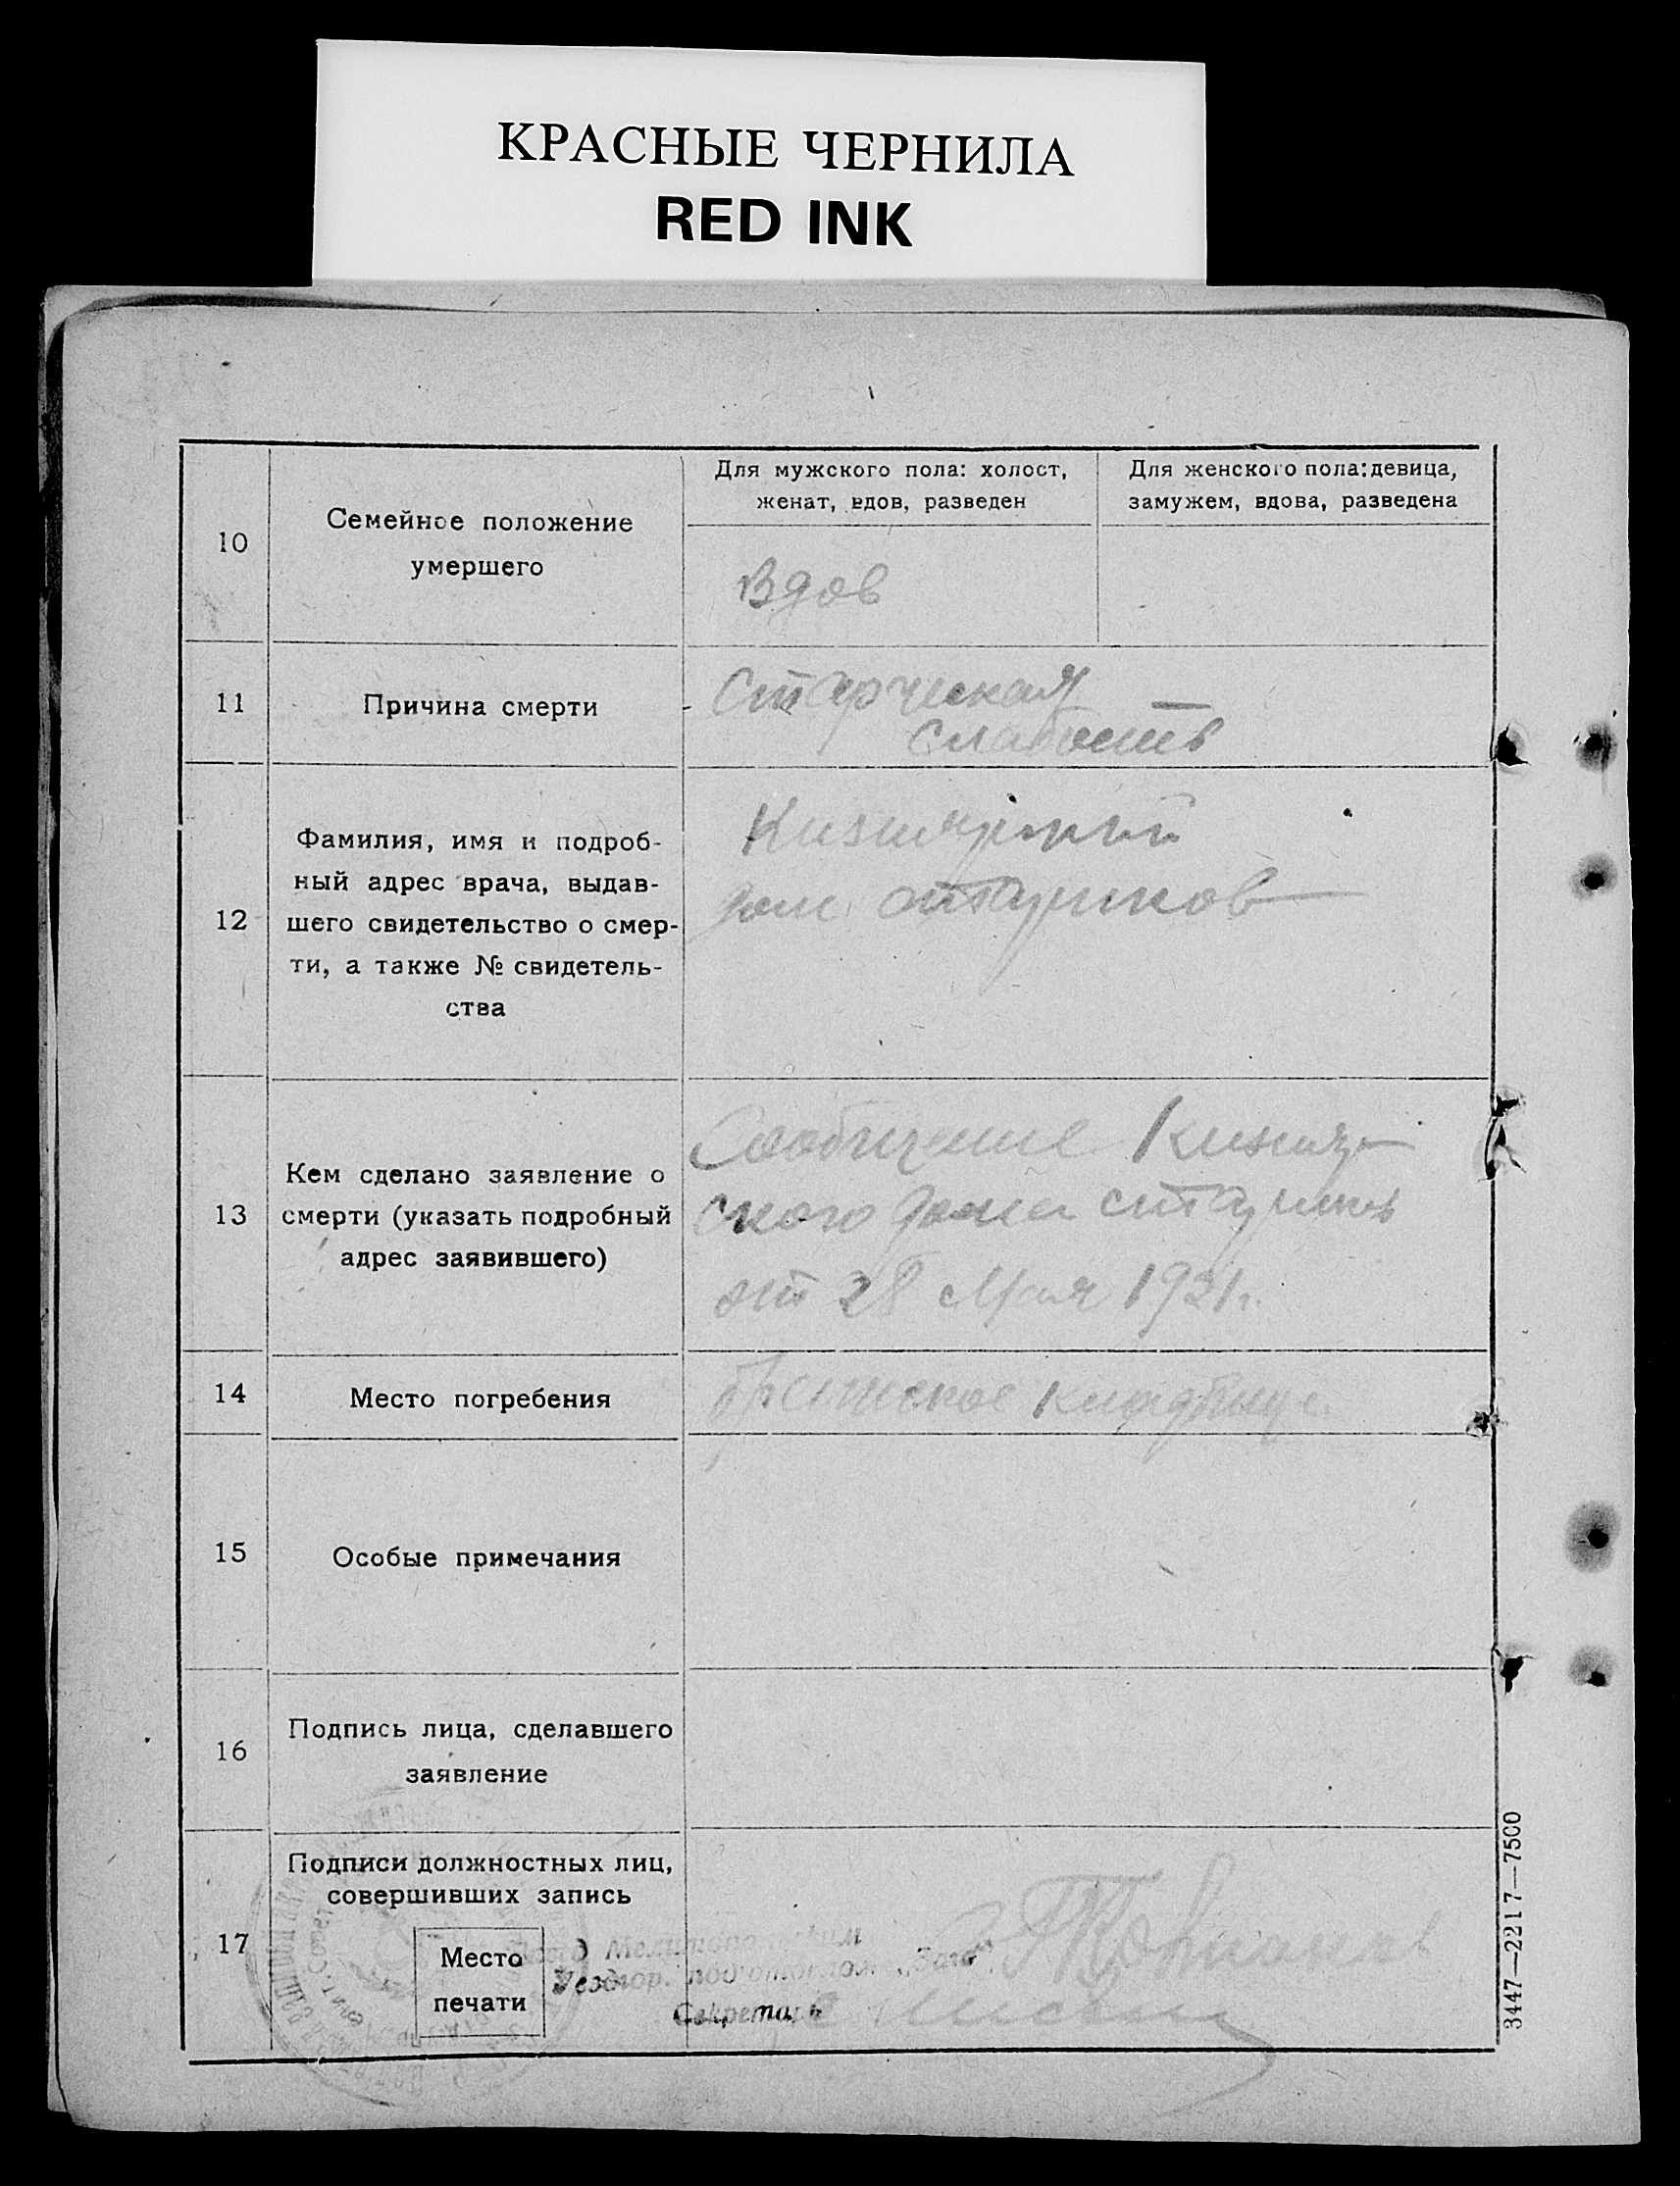 КРАСНЫЕ ЧЕРНИЛА
RED INK
10
Семейное положение
умершего
Для мужского пола: холост,
женат, вдов, разведен
Для женского пола: девица,
замужем, вдова, разведена
Вдов
11
Причина смерти
Старческая
слабость
12
Фамилия, имя и подроб-
ный адрес врача, выдав-
шего свидетельство о смер-
ти, а также № свидетель-
ства
Кизиярский
дом стариков
13
Кем сделано заявление о
смерти (указать подробный
адрес заявившего)
Сообщение Кизияр-
ского дома стариков
от 28 Мая 1921 г.
14
Место погребения
кладбище
15
Особые примечания
16
Подпись лица, сделавшего
заявление
17
Подписи должностных лиц,
совершивших запись
Место
печати
Секретарь
3447—2217—7500